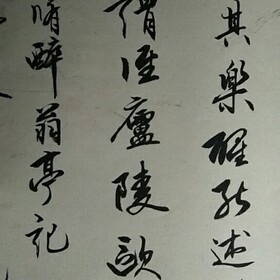 其樂醒能述
謂誰廬陵歐
脩醉翁亭記